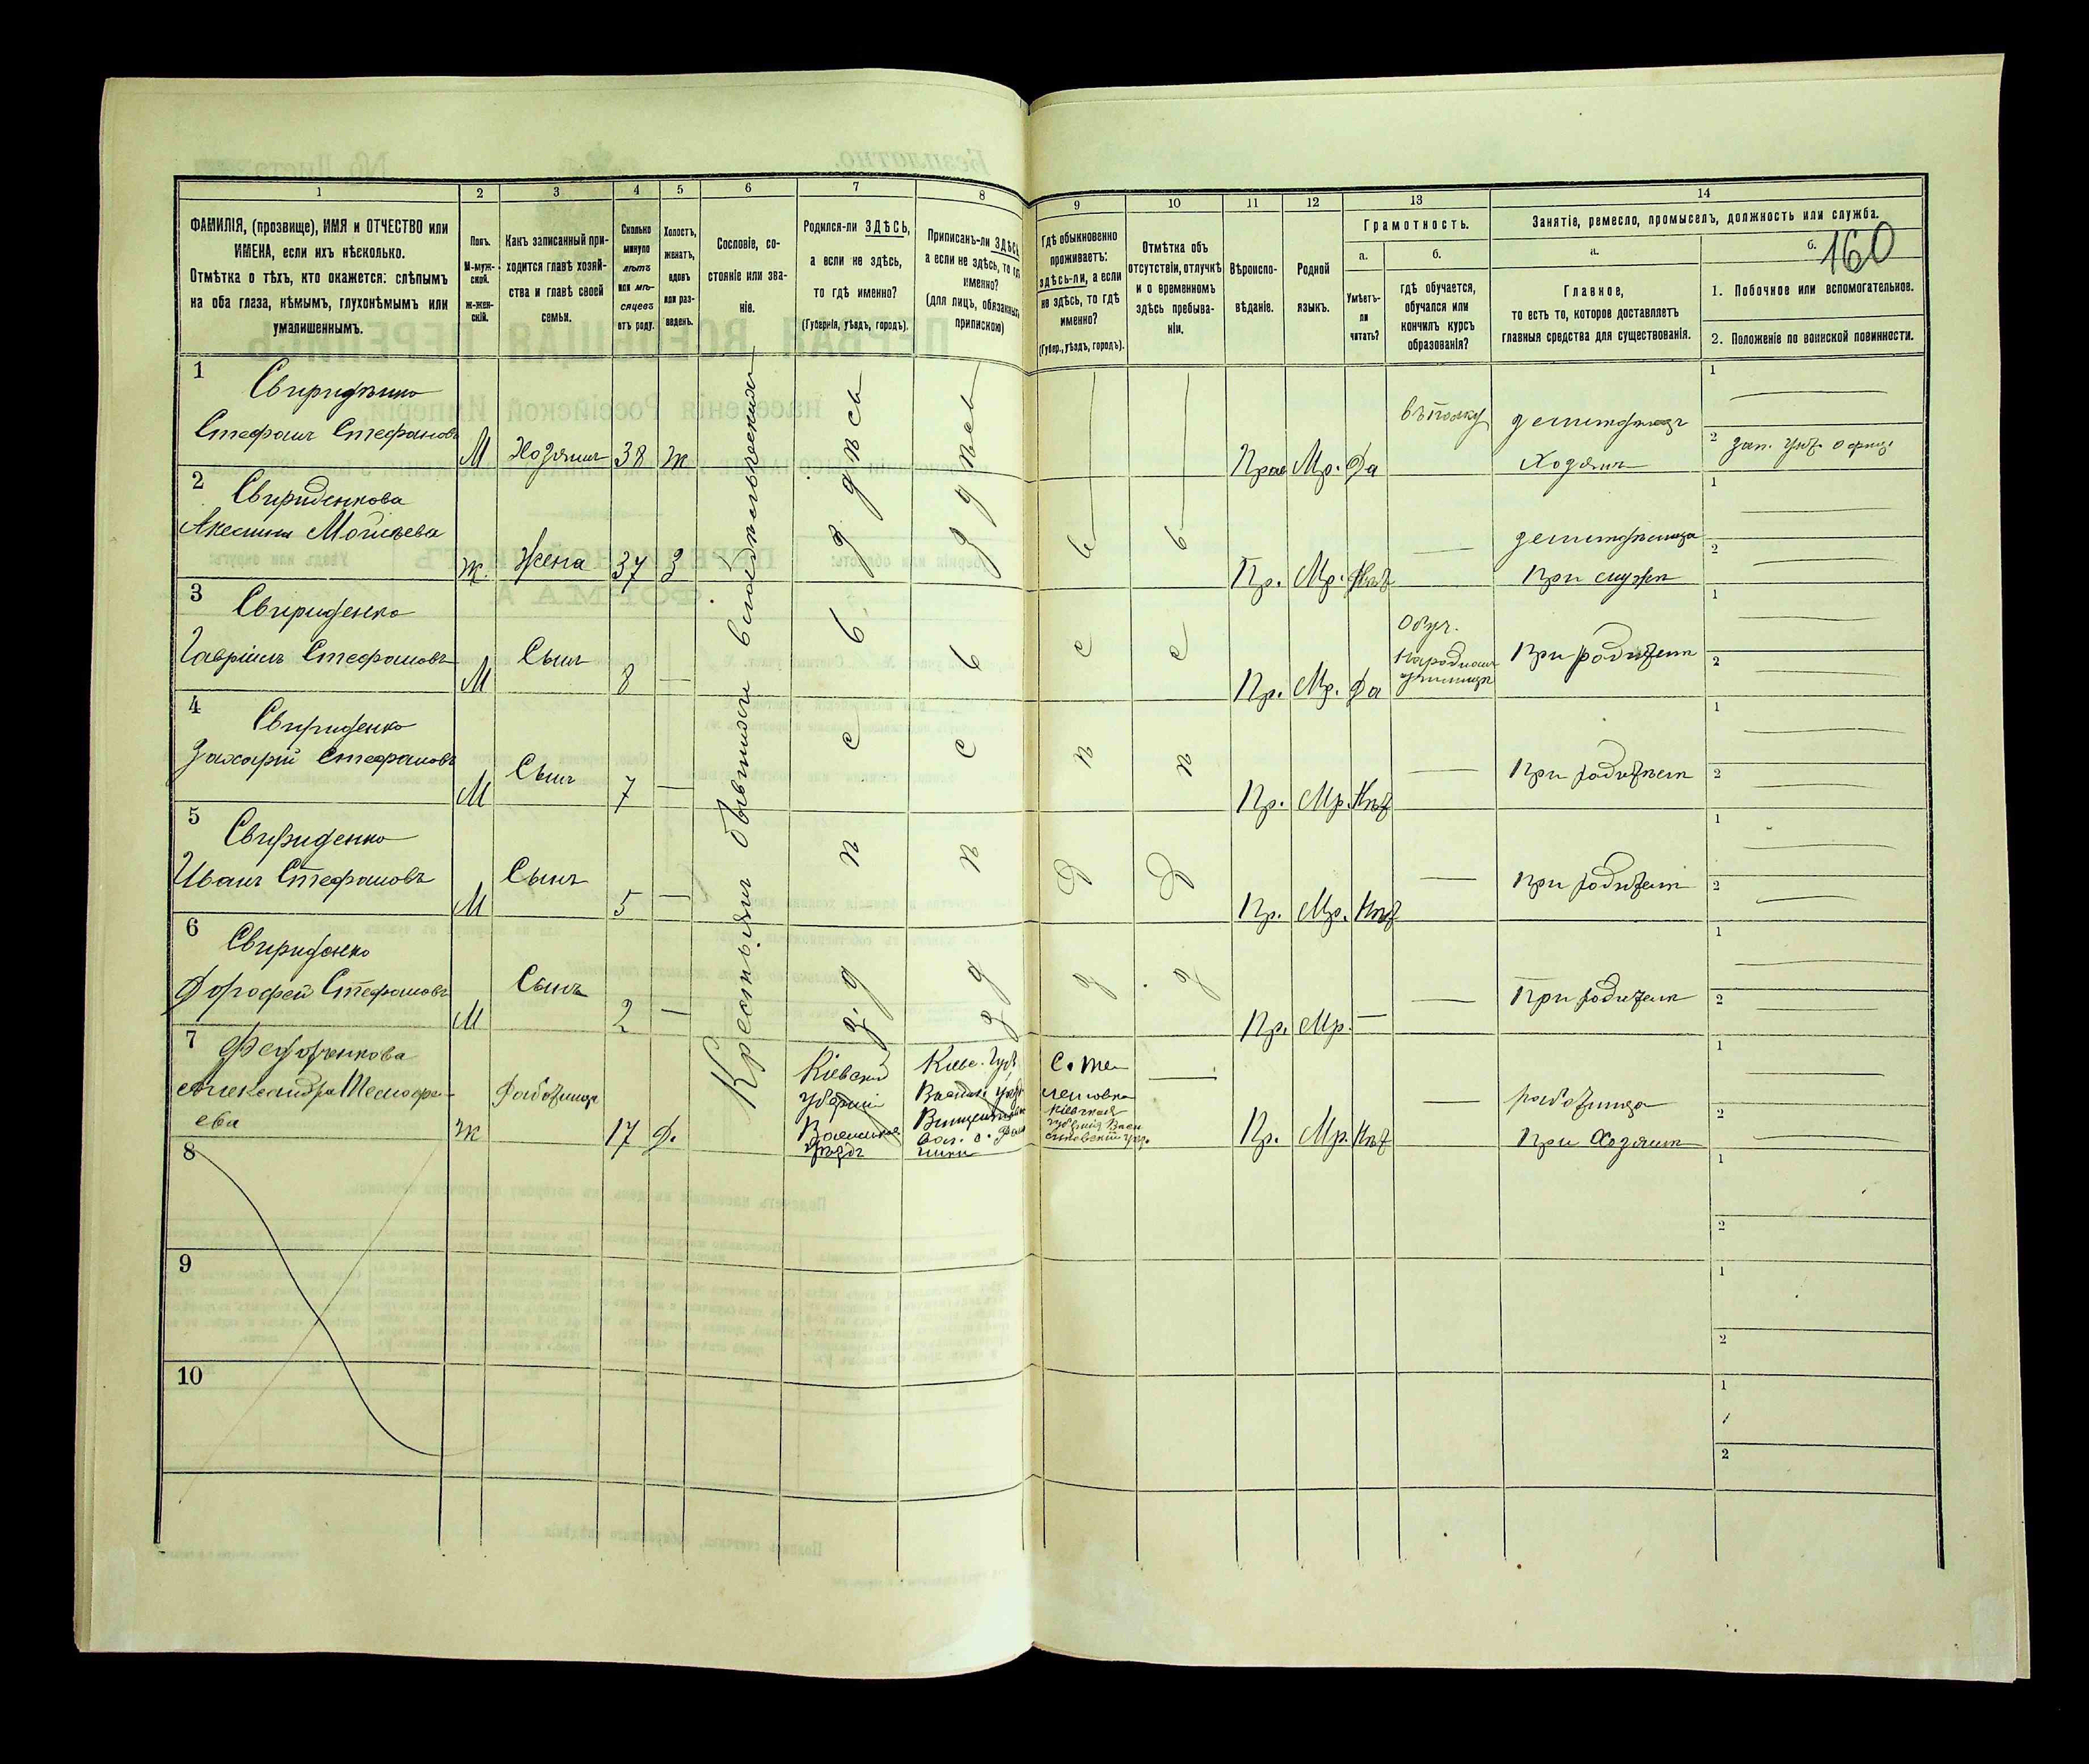 1
2
3
4
5
6
7
8
9
10
11
12
13
14
ФАМИЛІЯ, (прозвище), ИМЯ и ОТЧЕСТВО или
ИМЕНА, если ихъ нѣсколько.
Отмѣтка о тѣхъ, кто окажется: слѣпымъ
на оба глаза, нѣмымъ, глухонѣмымъ или
умалишеннымъ.
Полъ.
М-муж-
ской.
ж-жен-
скій.
Какъ записанный при-
ходится главѣ хозяй-
ства и главѣ своей
семьи.
Сколько
минуло
лѣтъ
или мѣ-
сяцевъ
отъ роду.
Холостъ,
женатъ,
вдовъ
или раз-
веденъ.
Сословіе, со-
стояніе или зва-
ніе.
Родился-ли ЗДѢСЬ,
а если не здѣсь,
то гдѣ именно?
(Губернія, уѣздъ, городъ).
Приписанъ-ли ЗДѢСЬ
а если не здѣсь, то гдѣ
именно?
(для лицъ, обязанныхъ
припискою)
Гдѣ обыкновенно
проживаетъ:
здѣсь-ли, а если
не здѣсь, то гдѣ
именно?
(Губер., уѣздъ, городъ).
Отмѣтка объ
отсутствіи, отлучкѣ
и о временномъ
здѣсь пребыва-
ніи.
Вѣроиспо-
вѣданіе.
Родной
языкъ.
Грамотность.
а.
Умѣетъ-
ли
читать?
б.
гдѣ обучается,
обучался или
кончилъ курсъ
образованія?
Занятіе, ремесло, промыселъ, должность или служба.
а.
Главное,
то есть то, которое доставляетъ
главныя средства для существованія.
б.
160
1. Побочное или вспомогательное.
2. Положеніе по воинской повинности.
Крестьянинъ бывшихъ
1
Свириденко
Стефанъ Стефановъ
М
Хозяинъ
38
ж
здѣсь
здѣсь
Прав
Мр.
Да
въ полку
Хозяинъ
1
2
зап. унт. офиц.
2
Свириденкова
Моисѣева
ж.
Жена
37
З
Пр.
Мр.
Нѣт
При мужѣ
1
2
3
Свириденко
Гавріилъ Стефановъ
М
Сынъ
8
Пр.
Мр.
Да
Обуч.
Народномъ
училищѣ
При родителѣ
1
2
4
Свириденко
Захарій Стефановъ
М
Сынъ
7
Пр.
Мр.
Нѣт
При родителѣ
1
2
5
Свириденко
Иванъ Стефановъ
М
Сынъ
5
Пр.
Мр.
Нѣт
При родителѣ
1
2
6
Свириденко
Дорофей Стефановъ
М
Сынъ
2
Пр.
Мр.
При родителѣ
1
2
7
Александра
ева
ж
Работница
17
Д.
Кіевской
губерніи
уѣздъ
Кіев. Губ.
Пр.
Мр.
Нѣт
работница
При Хозяинѣ
1
2
8
1
2
9
1
2
10
1
2